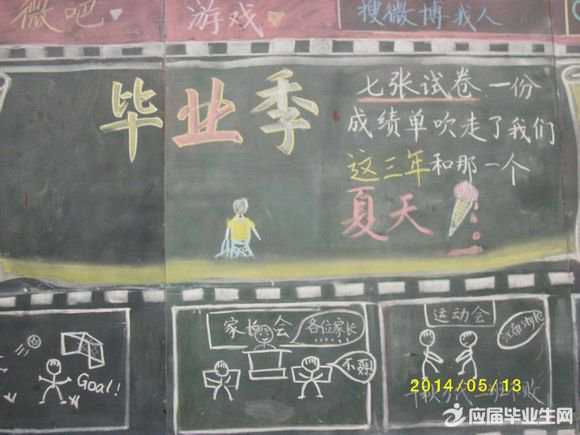 微吧 游戏 搜微博 找人
毕业季
七张试卷一份
成绩单吹走了我们
这三年和那一个
夏天
Goal!
家长会
各位家长
运动会
2014/05/13
应届毕业生网